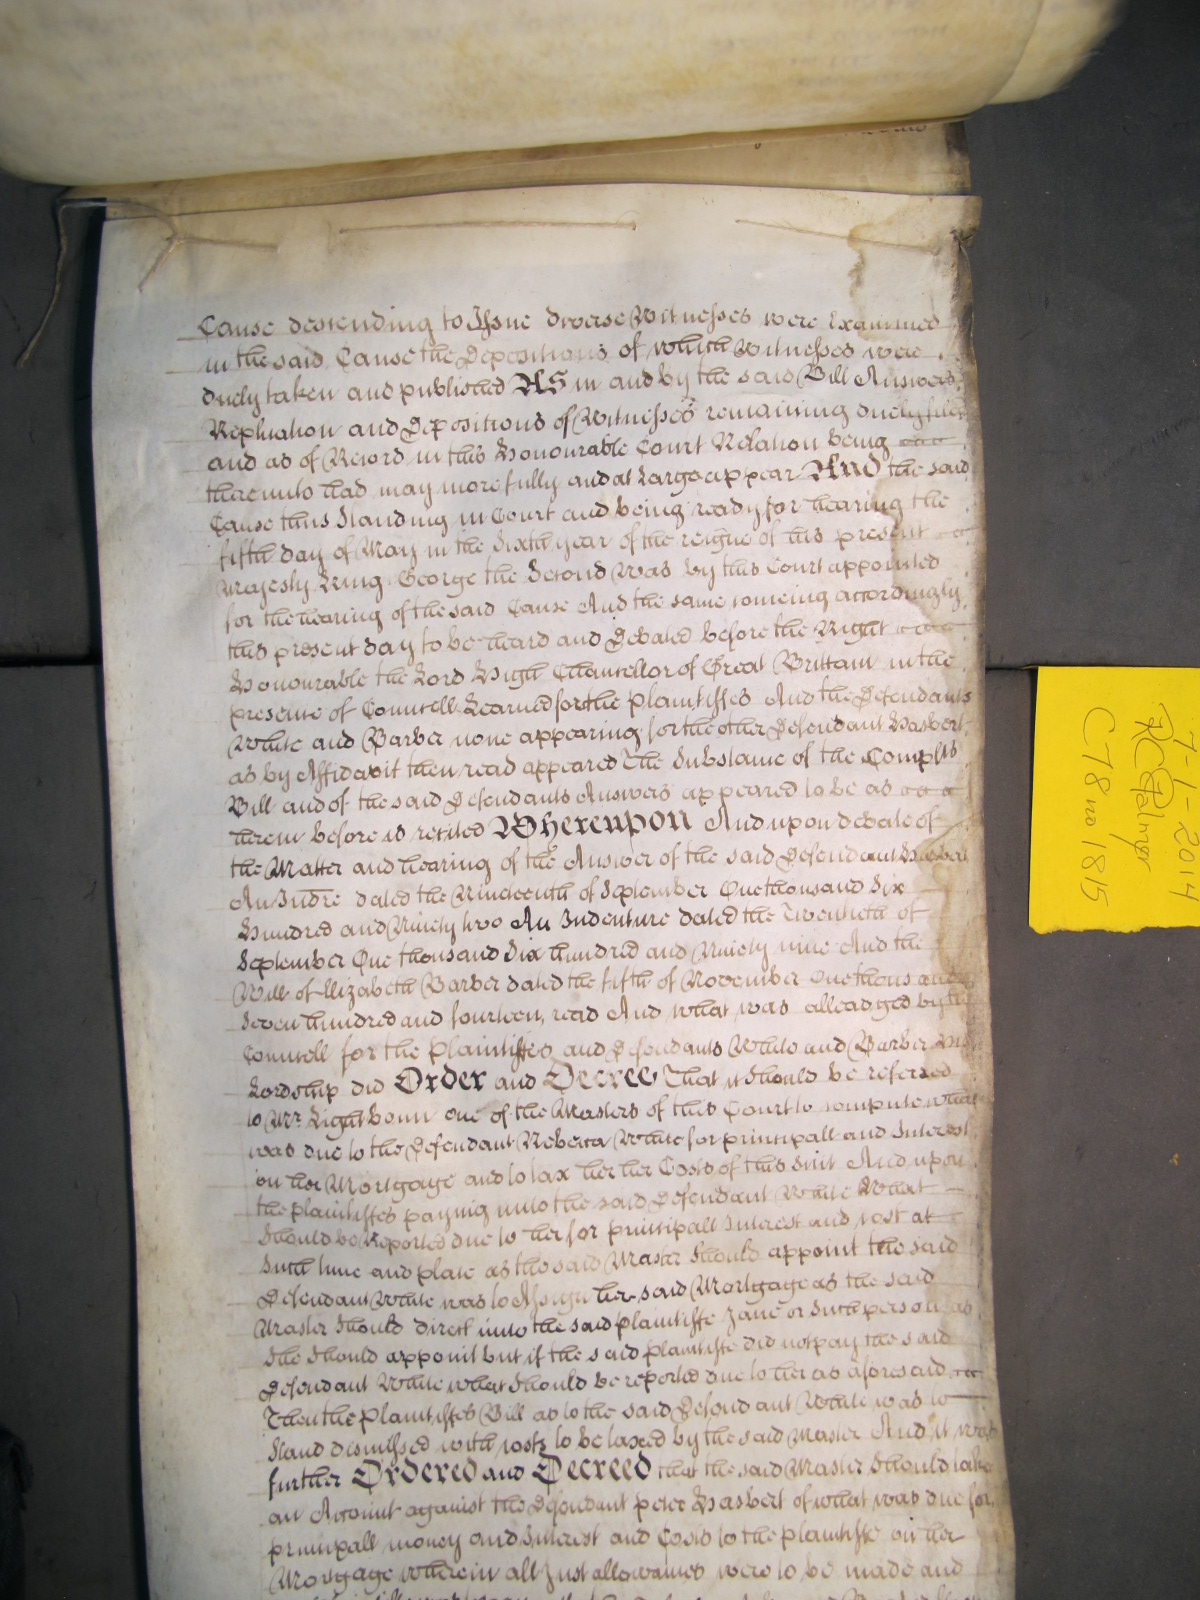 Cause descending to Issue diverse Witnesses were Examined
in the said Cause the Depositions of which Witnesses were
duely taken and published AS in and by the said Bill Answers
Replication and Depositions of Witnesses remaining duely filed
and as of Record in this Honourable Court Relation being
thereunto had may more fully and at Large appear And the said
Cause thus Standing in Court and being ready for hearing the
fifth day of May in the Sixth year of the reigne of his present
Majesty King George the Second was by this Court appointed
for the hearing of the said Cause And the same comeing accordingly
this present day to be heard and Debated before the Right
Honourable the Lord High Chancellor of Great Brittain in the
presence of Councell Learned for the Plaintiffes And the Defendants
White and Barber none appearing for the other Defendant Hasbert
as by Affidavit then read appeared The Substance of the Complts
Bill and of the said Defendants Answers appeared to be as
herein before is recited Whereupon And upon debate of
the Matter and hearing of the Answer of the said Defendant Hasbert
An Indre dated the Nineteenth of September One thousand Six
Hundred and Ninety two An Indenture dated the Twentieth of
September One thousand Six hundred and Ninety nine And the
Will of Elizabeth Barber dated the fifth of November One thousand
Seven hundred and fourteen, read And what was alleadged by the
Councell for the Plaintiffes and Defendants White and Barber His
Lordship did Order and Decree That it Should be referred
to Mr. Lightboun one of the Masters of this Court to compute what
was due to the Defendant Rebecca White for principall and Interest
on her Mortgage and to tax her her Costs of this Suit And upon
the plaintiffes paying unto the said Defendant White What
Should be Reported due to her for principall Interest and cost at
Such time and place as the said Master Should appoint the said
Defendant White was to Assign her said Mortgage as the said
Master Should direct unto the said plaintiffe Jane or Such person as
She Should appoint but if the said plaintiffe did not pay the said
Defendant White what Should be reported due to her as aforesaid
Then the plaintiffes Bill as to the said Defendant White was to
Stand dismissed with costs to be taxed by the said Master And it was
further Ordered and Decreed that the said Master Should take
an Account against the Defendant Peter Hasbert of what was due for
principall money and Interest and Costs to the plaintiffe on her
Mortgage wherein all Just allowances were to be made and
7-1-2014
RCPalmer
C78 no 1815